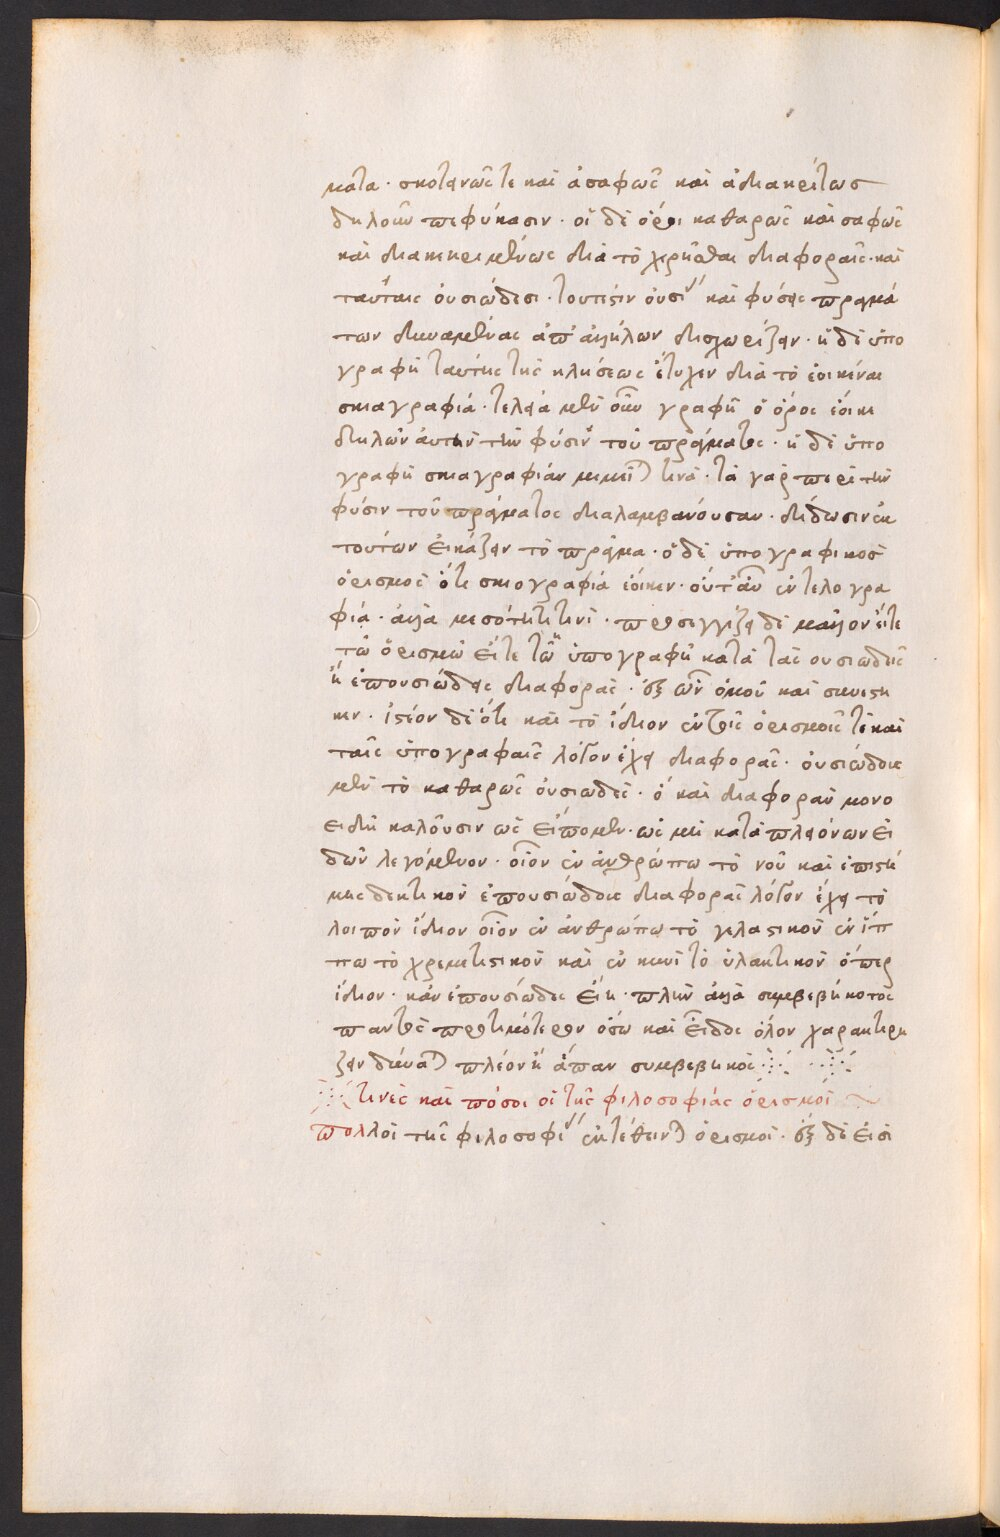 ματα · σκοτεινῶς τε καὶ ἀσαφῶς καὶ ἀδιακρίτως
δηλοῦν πεφύκασιν · οἱ δὲ ὅροι καθαρῶς καὶ σαφῶς
καὶ διακεκριμένως διὰ τὸ χρῆσθαι διαφοραῖς · καὶ
ταύταις οὐσιώδεσι · τουτέστιν οὐσί καὶ φύσεις πραγμά
των δυναμέναις ἀπ' ἀλλήλων διαχωρίζειν · ἡ δὲ ὑπο
γραφὴ ταύτης τῆς κλήσεως ἔτυχεν διὰ τὸ ἐοικέναι
σκιαγραφιά · τελεία μὲν οὖν γραφῆ ὁ ὅρος ἔοικε
δηλῶν αὐτὴν τὴν φύσιν τοῦ πράγματος · ἡ δὲ ὑπο
γραφὴ σκιαγραφιάν μιμεῖ) τινὰ · τὰ γὰρ περὶ τὴν
φύσιν τοῦ πράγματος διαλαμβανόυσαν · δίδωσιν ἐκ
τουτῶν εἰκάζειν τὸ πράγμα · ὁ δὲ ὑπογραφικὸς
ὁρισμὸς ὅτε σκιογραφιά ἔοικεν · οὔτ' ἂν ἐντελο γρα
φιά · ἀλλὰ μεσότητι τινὶ · προσεγγίζει δὲ μᾶλλον εἴτε
τῶ ὁρισμῶ εἴτε τῶ ὑπογραφῆ κατὰ τὰς ουσιωδεῖς
ἢ ἐπουσιώδεις διαφορὰς · ἐξ ὧν ὁμοῦ καὶ συνεστη
κεν · ἰστέον δὲ ὅτι καὶ τὸ ἴδιον ἐν τοῖς ὁρισμοῖς τὲ καὶ
ταῖς ὑπογραφαῖς λόγον ἔχει διαφορᾶς · οὐσιώδους
μὲν τὸ καθαρῶς οὐσιωδὲς · ὁ καὶ διαφορὰν μονο
ειδῆ καλοῦσιν ὡς εἴπομεν · ὡς μὴ κατὰ πλειόνων εἰ
δῶν λεγόμενον · οἷον ἐν ἀνθρώπω τὸ νοῦ καὶ ἐπιστή
μης δεκτικὸν ἐπουσιώδους διαφορᾶς λόγον ἔχει τὸ
λοιπὸν ἴδιον οἷον ἐν ἀνθρώπω τὸ γελαστικὸν ἐν ἵπ
πω τὸ χρεμετιστικὸν καὶ ἐν κυνὶ τὸ ὑλακτικὸν ὅπερ
ἴδιον · κἂν ἐπουσιώδες εἴη · πλὴν ἀλλὰ συμβεβηκοτος
παντὸς προτιμότερον ὅσω καὶ εἶδος ὅλον χαρακτηρι
ζειν δύνα) πλέον ἢ ἅπαν συμβεβηκὸς
τινὲς καὶ πόσοι οἱ τῆς φιλοσοφιάς ὁρισμοί
πολλοὶ τῆς φιλοσοφί ἐκτέθειν) ὁρισμοὶ · ἓξ δὲ εἰσὶ